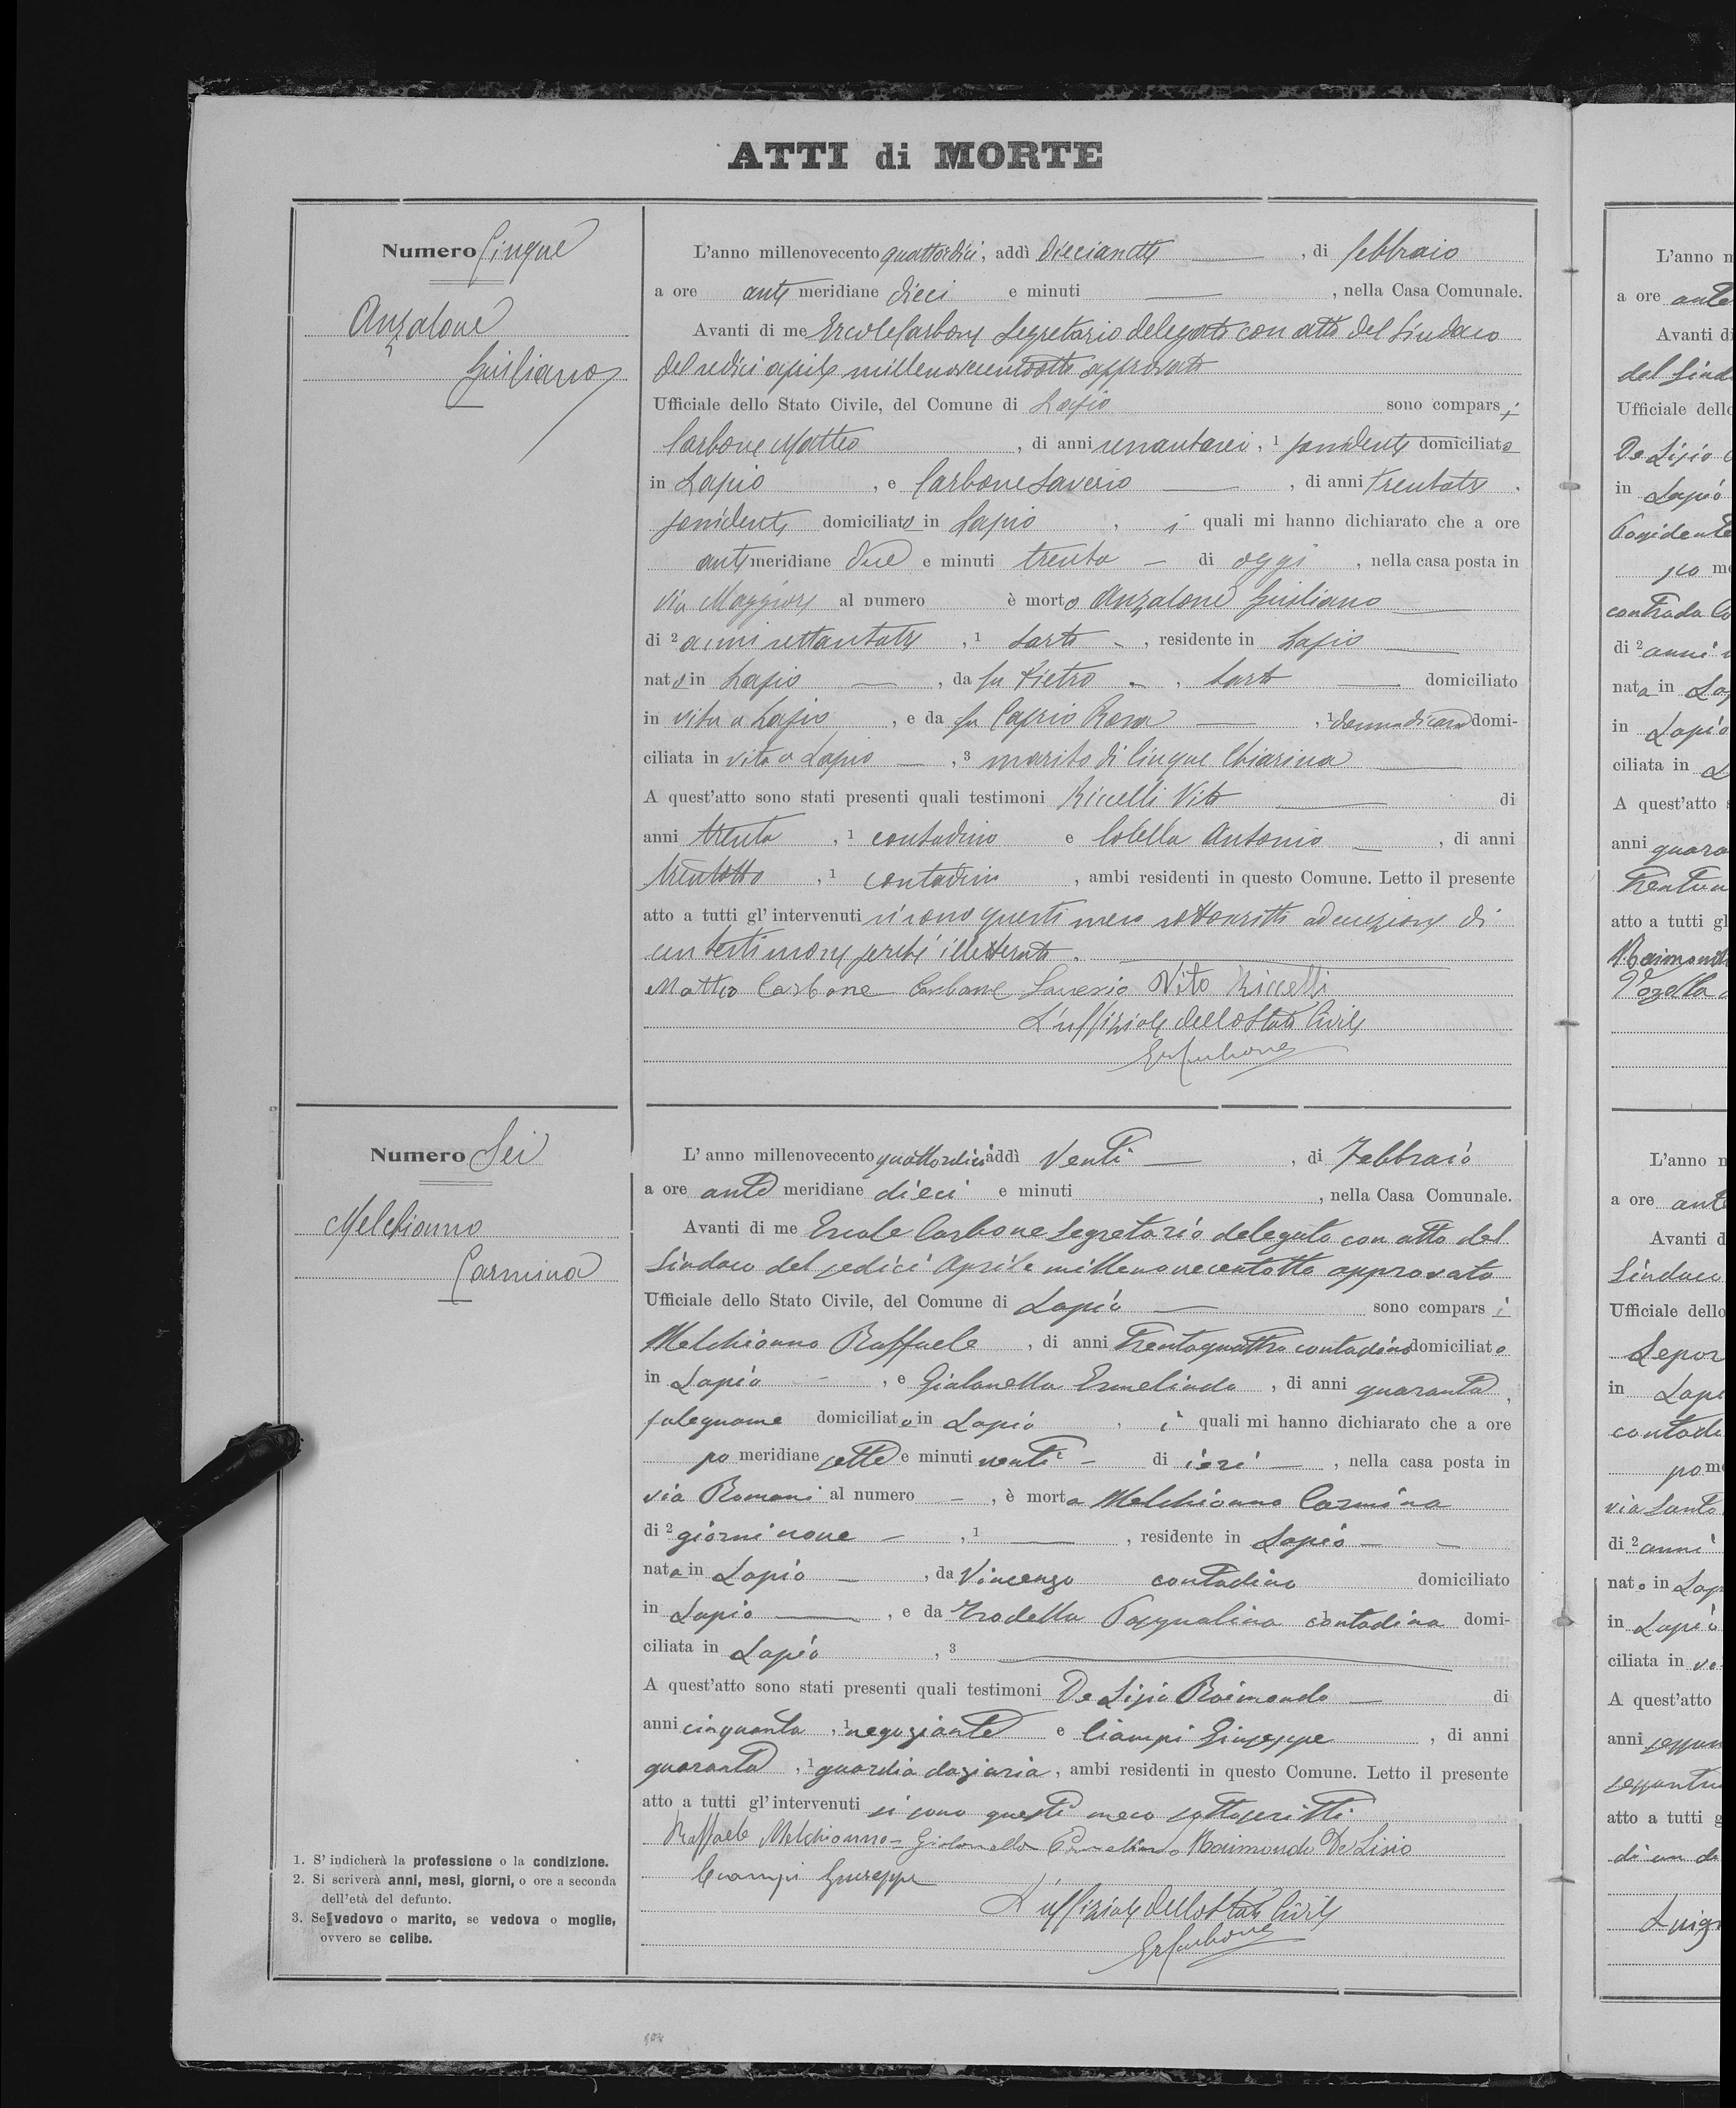 ATTI di MORTE
Numero Cinque
Anzalone
Giuliano
L'anno millenovecento quattordici, addì diecianotte, di febbraio
a ore anti meridiane dieci e minuti, nella Casa Comunale.
Avanti di me Ercole Carbone Segretario delegato con atto del Sindaco
del sedici aprile millenovecentootto approvato
Ufficiale dello Stato Civile, del Comune di Lapio sono comparsi
Carbone Matteo, di anni sessantasei, 1 possidente domiciliato
in Lapio, e Carbone Saverio, di anni trentatre.
possidente domiciliato in Lapio, i quali mi hanno dichiarato che a ore
anti meridiane due e minuti trenta di oggi, nella casa posta in
via Maggiore al numero è morto Anzalone Giuliano
di 2 anni settantatre, 1 sarto, residente in Lapio
nato in Lapio, da fu Pietro, sarto domiciliato
in vita a Lapio, e da fu Caprio Rosa, 1 donna di casa domi-
ciliata in vita a Lapio, 3 marito di Cinque Chiarina
A quest'atto sono stati presenti quali testimoni Riccelli Vito di
anni trenta, 1 contadino e Colella Antonio, di anni
trentotto, 1 contadino, ambi residenti in questo Comune. Letto il presente
atto a tutti gl'intervenuti si sono questi meco sottoscritti ad eccezione di
un testimone perché illetterato.
Matteo Carbone Carbone Saverio Vito Riccelli
L'uffiziale dello Stato Civile
ErCarbone
Numero Sei
Melchionno
Carmina
L'anno millenovecento quattordici addì Venti, di Febbraio
a ore ante meridiane dieci e minuti, nella Casa Comunale.
Avanti di me Ercole Carbone Segretario delegato con atto del
Sindaco del sedici Aprile millenovecentotto approvato
Ufficiale dello Stato Civile, del Comune di Lapio sono comparsi
Melchionno Raffaele, di anni trentaquattro contadino domiciliato
in Lapio, e Gialanella Ermelindo, di anni quaranta,
falegname domiciliato in Lapio, i quali mi hanno dichiarato che a ore
po meridiane sette e minuti venti di ieri, nella casa posta in
via Romani al numero, è morta Melchionno Carmina
di 2 giorni nove, 1, residente in Lapio
nata in Lapio, da Vincenzo contadino domiciliato
in Lapio, e da Trodella Pasqualina contadina domi-
ciliata in Lapio, 3
A quest'atto sono stati presenti quali testimoni De Lisio Raimondo di
anni cinquanta, 1 negoziante e Ciampi Giuseppe, di anni
quaranta, 1 guardia daziaria, ambi residenti in questo Comune. Letto il presente
atto a tutti gl'intervenuti si sono questi meco sottoscritti
Raffaele Melchionno Gialanella Ermelindo Raimondo De Lisio
Ciampi Giuseppe
L'uffiziale dello Stato Civile
ErCarbone
1. S'indicherà la professione o la condizione.
2. Si scriverà anni, mesi, giorni, o ore a seconda
dell'età del defunto.
3. Se vedovo o marito, se vedova o moglie,
ovvero se celibe.
L'anno
a ore ante
Avanti di
del Sind
Ufficiale dello
De Lisio
in Lapio
Possidente
po
contrada
di 2 anni
nata in
in Lapio
ciliata in
A quest'atto
anni
atto a tutti gl
L'anno
a ore ante
Avanti d
Sindaco
Ufficiale dello
in
pom
via Santo
di 2 anni
nato in
in Lapio
ciliata in
A quest'atto
anni
atto a tutti
Luigi